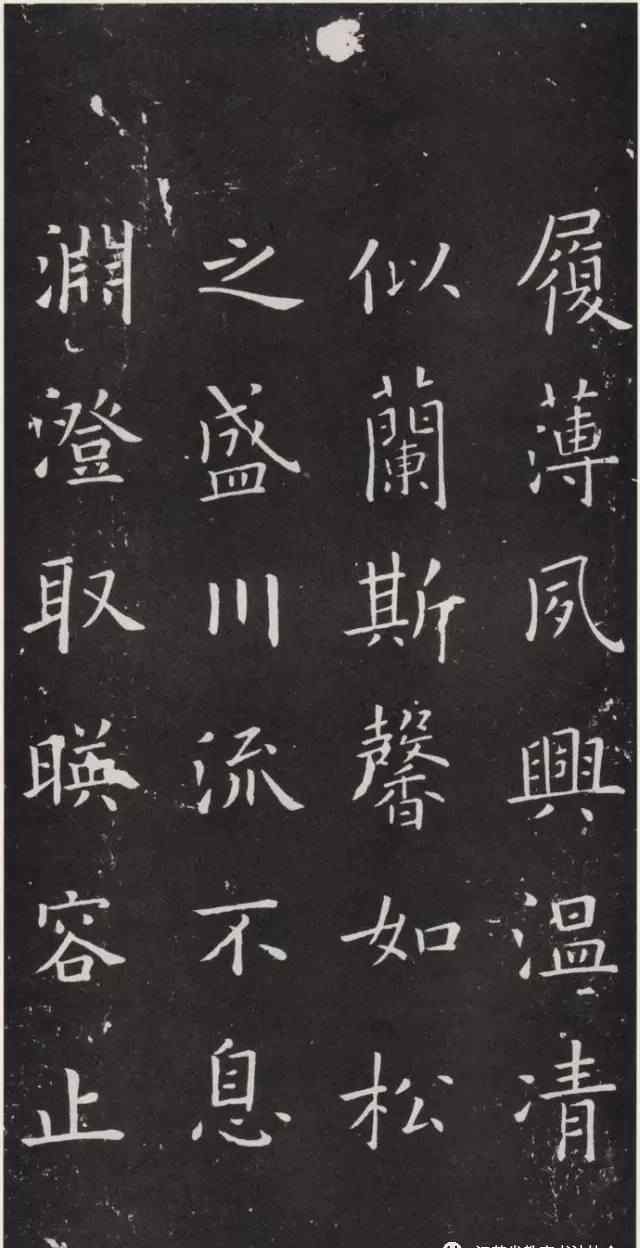 履薄夙興温清
似蘭斯馨如松
之盛川流不息
淵澄取暎容止